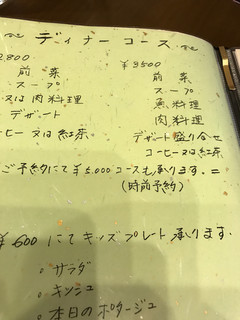 ディナーコース
2,800
前菜
スープ
又は肉料理
デザート
コーヒー又は紅茶
¥3500
前菜
スープ
魚料理
肉料理
デザート盛り合せ
コーヒー又は紅茶
ご予約にて¥5,000コースも承ります。=
(時前予約)
¥600にてキッズプレート承ります。
○サラダ
○キッシュ
○本日のポタージュ